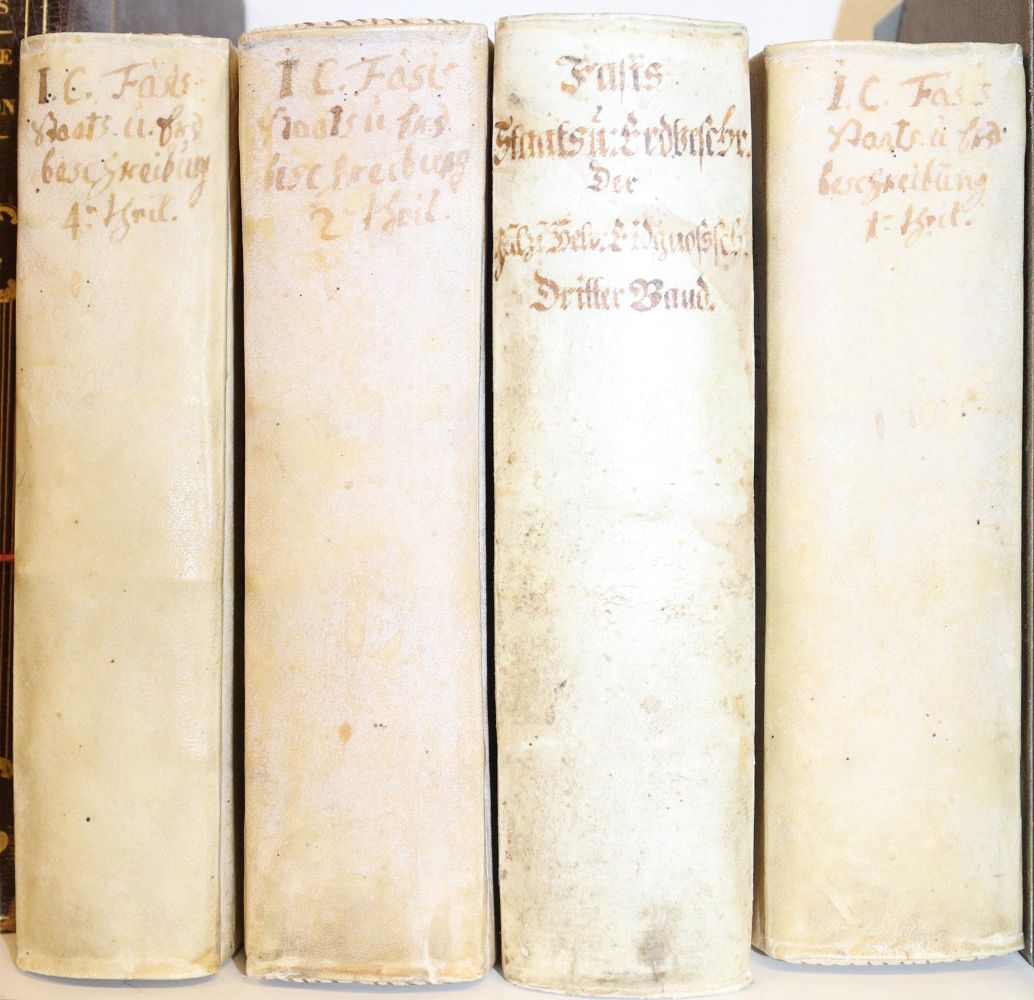 I. C. Fäsis
Staats. u. Erd
beschreibung
4r theil.
I C. Fäsis
Staats u Erd
beschreibung
2r theil.
Fäsis
Staats u: Erdbeschr.
Der
Helv: Eidgnosssch.
Dritter Band.
I. C. Fäsis
Staats. u Erd
beschreibung
1r theil.